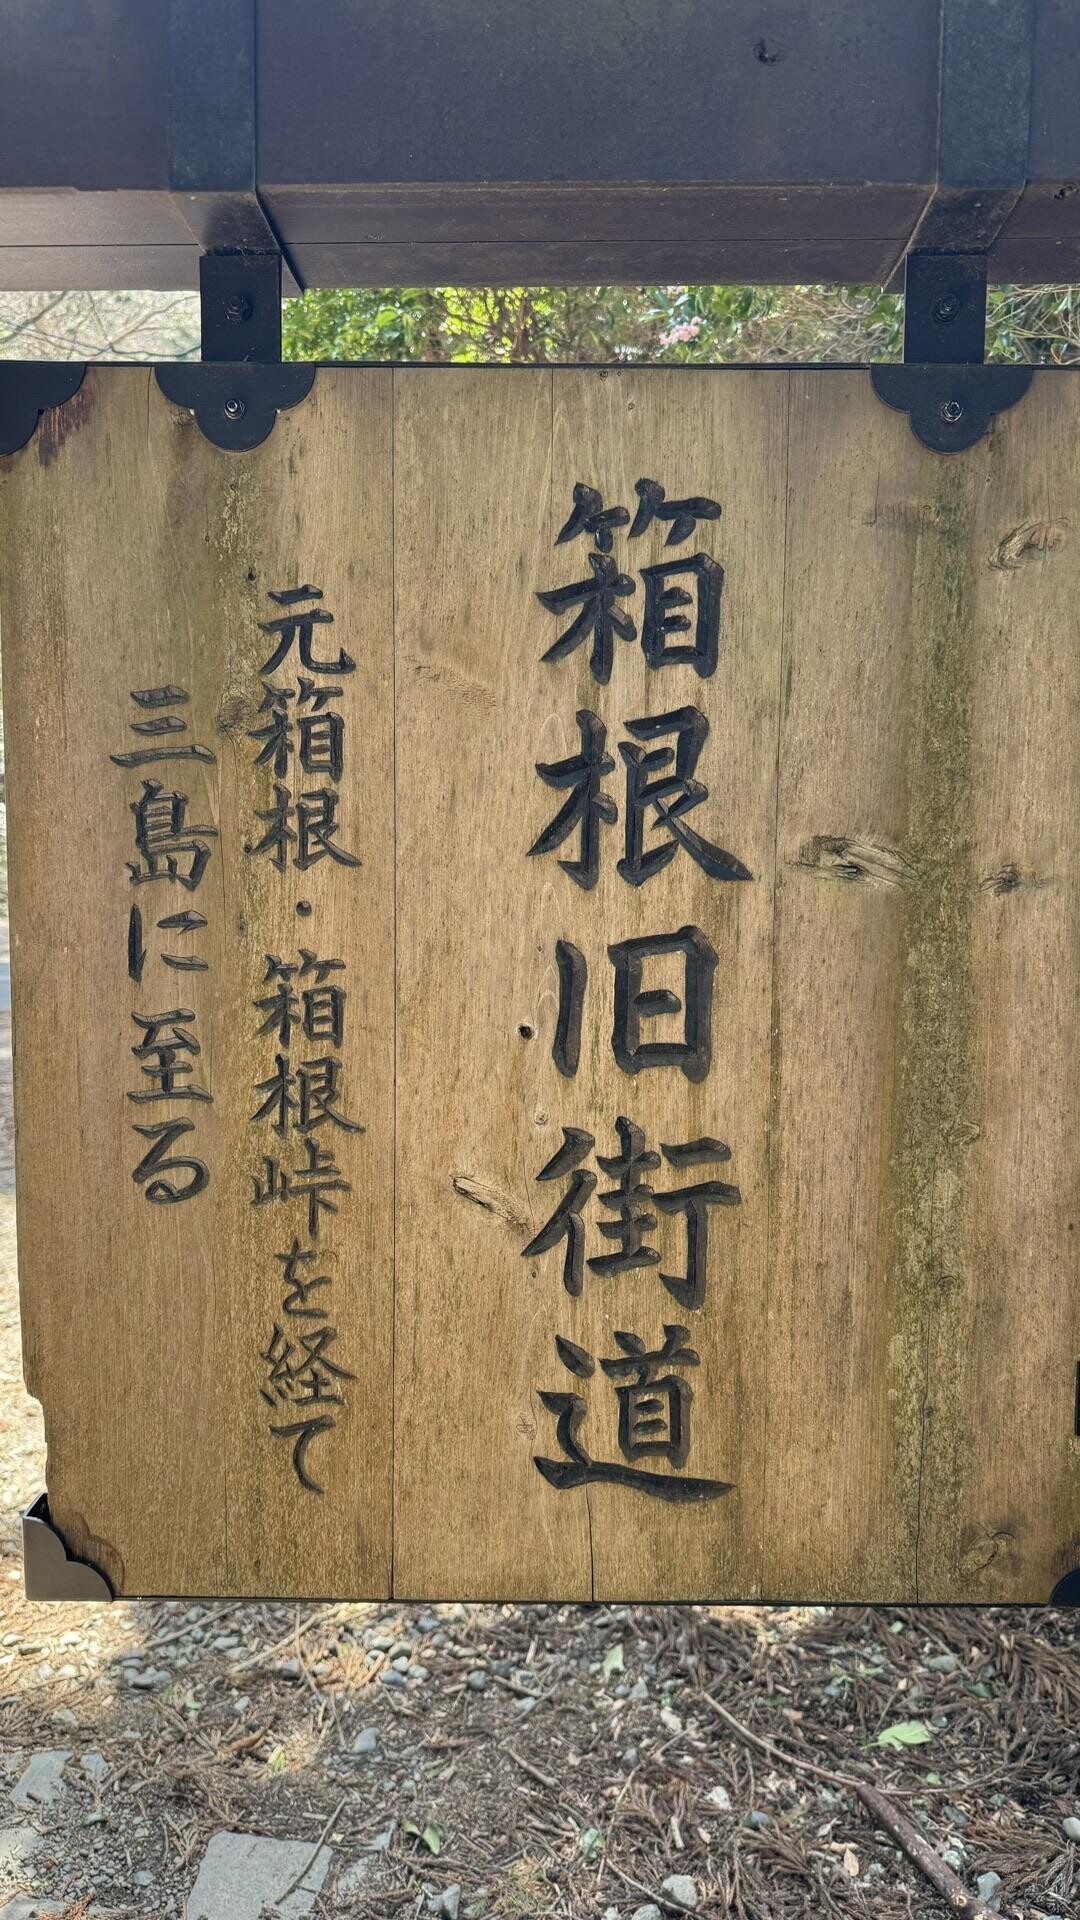 箱根旧街道
元箱根・箱根峠を経て
三島に至る